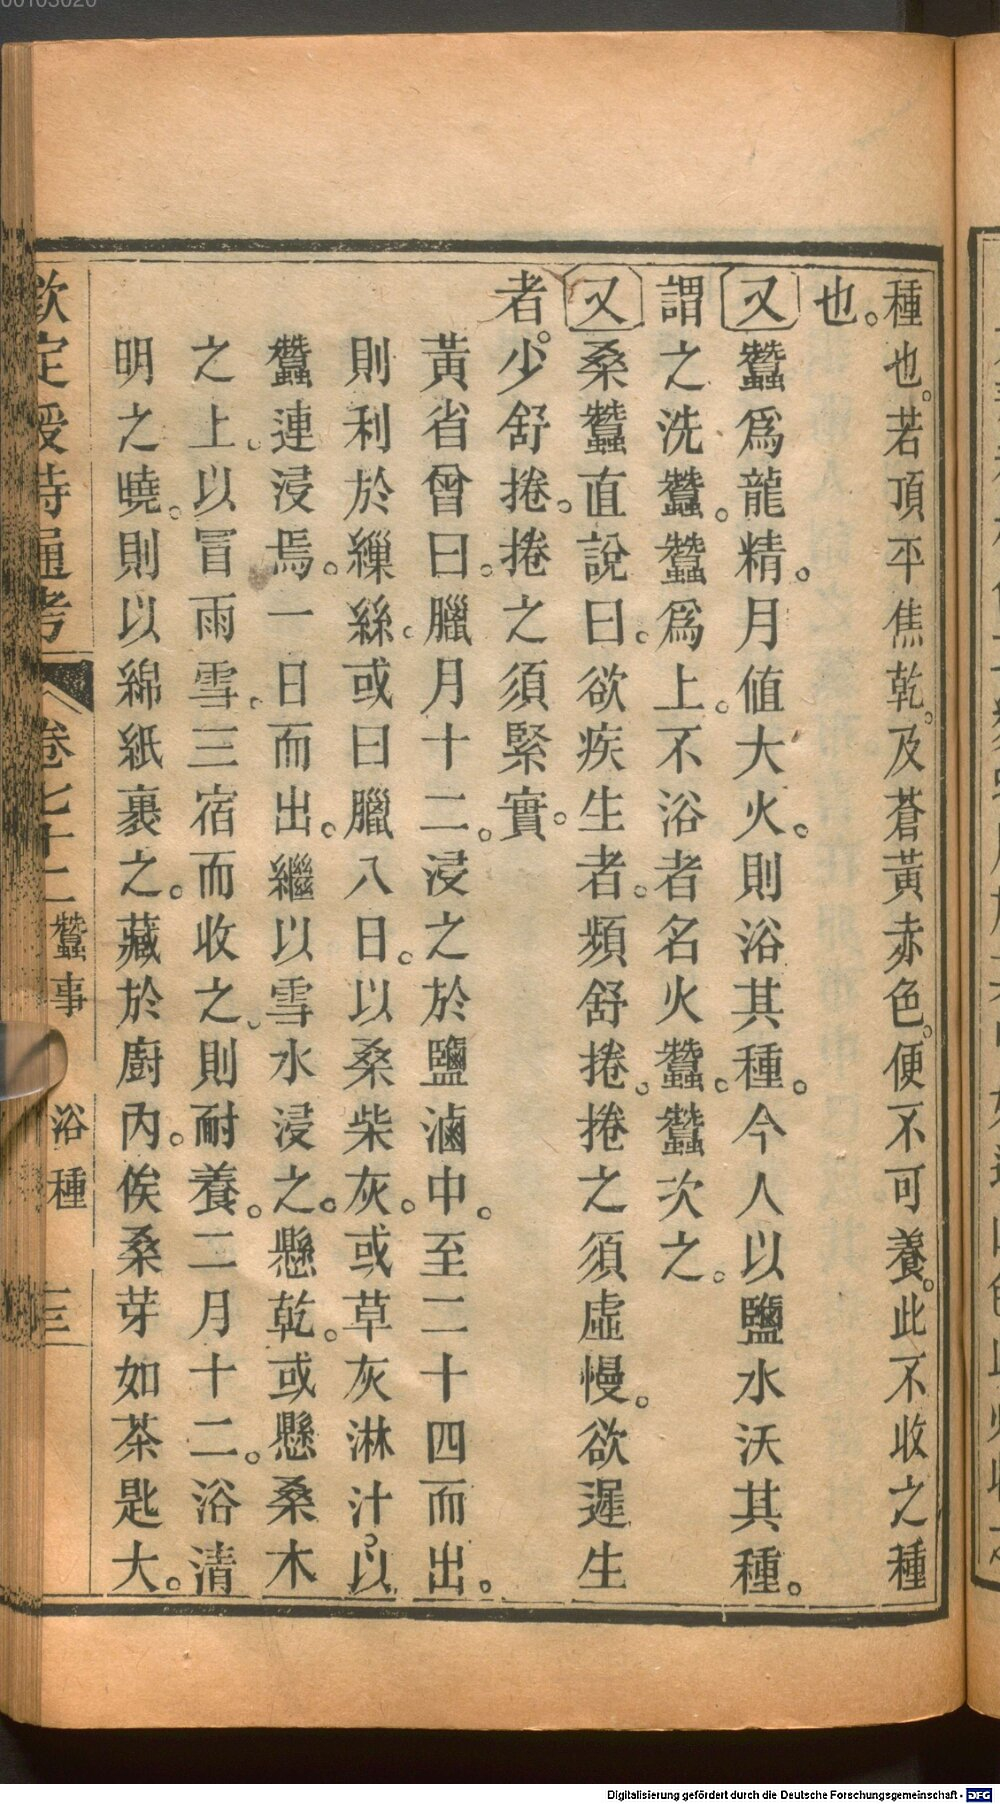 種也。若頂平焦乾。及蒼黃赤色。便不可養。此不收之種
也。
又蠶爲龍精。月値大火。則浴其種。今人以鹽水沃其種。
謂之洗蠶。蠶爲上。不浴者名火蠶。蠶次之。
又桑蠶直說曰。欲疾生者。頻舒捲。捲之須虛慢。欲遲生
者。少舒捲。捲之須緊實。
黃省曾曰。臘月十二。浸之於鹽滷中。至二十四而出。
則利於繅絲。或曰臘八日。以桑柴灰。或草灰淋汁。以
蠶連浸焉。一日而出。繼以雪水浸之。懸乾。或懸桑木
之上。以冒雨雪。三宿而收之。則耐養。二月十二。浴清
明之曉。則以綿紙裹之。藏於廚內。俟桑芽如茶匙大。
欽定授時通考
卷七十二 蠶事 浴種 三
00103020
Digitalisierung gefördert durch die Deutsche Forschungsgemeinschaft - DFG